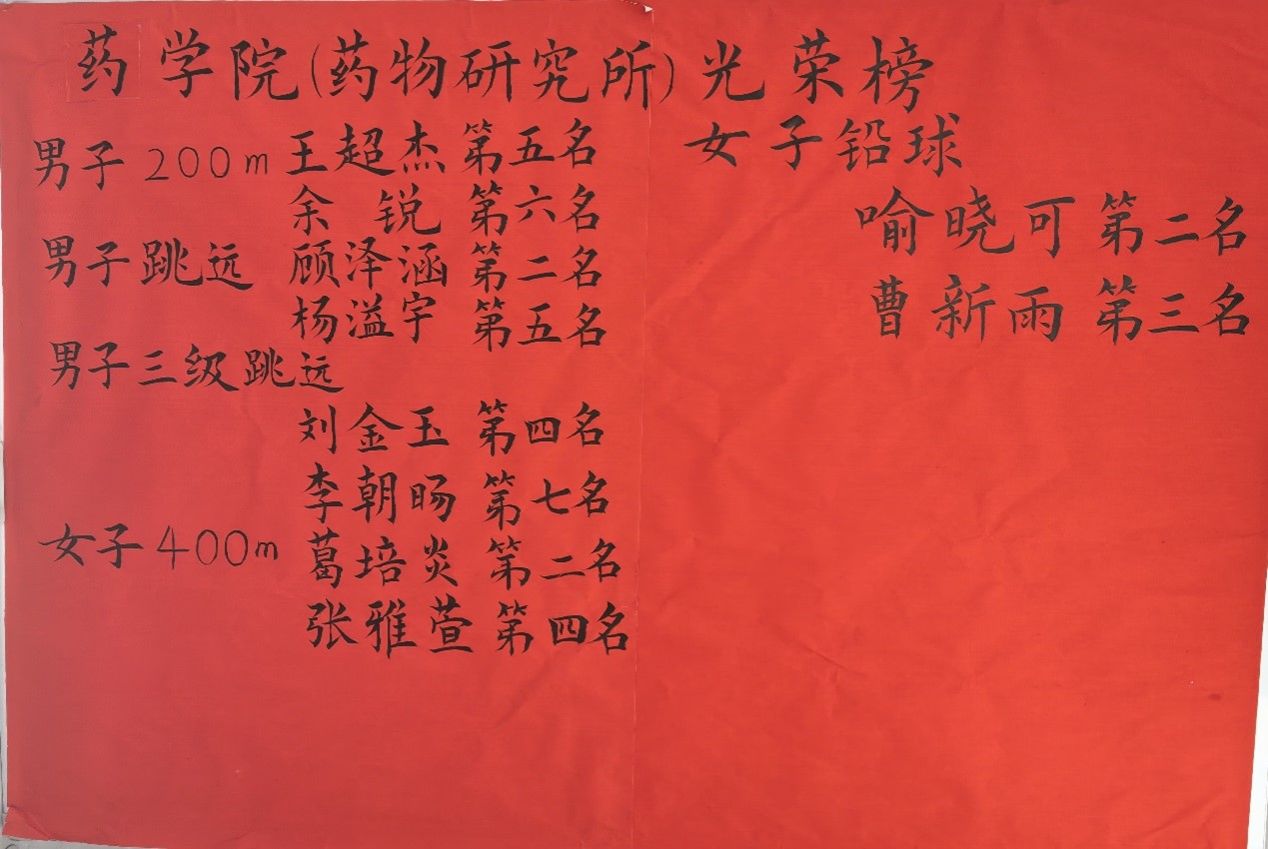 药学院(药物研究所)光荣榜
男子200m 王超杰 第五名
余 锐 第六名
男子跳远 顾泽涵 第二名
杨溢宇 第五名
男子三级跳远
刘金玉 第四名
李朝旸 第七名
女子400m 葛培炎 第二名
张雅萱 第四名
女子铅球
喻晓可 第二名
曹新雨 第三名